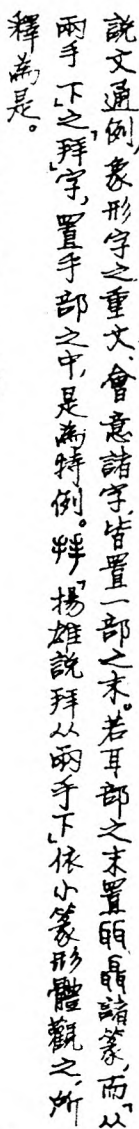 說文通例，象形字之重文、會意諸字，皆置一部之末。若耳部之末置聑聶諸篆，而「从
兩手下」之「拜」字，置手部之中，是為特例。𢫶，「揚雄說拜从兩手下」依小篆形體觀之，所
釋為是。